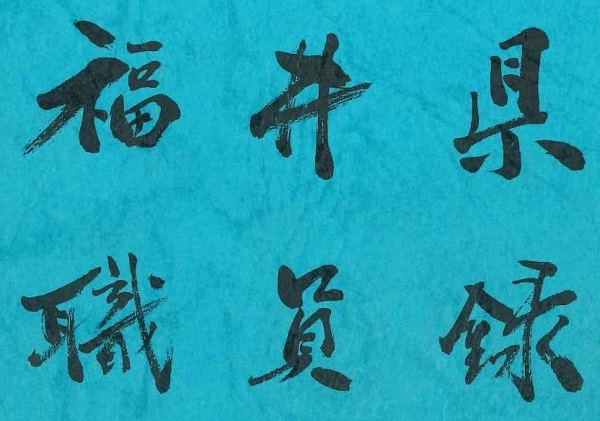 福井県
職員録